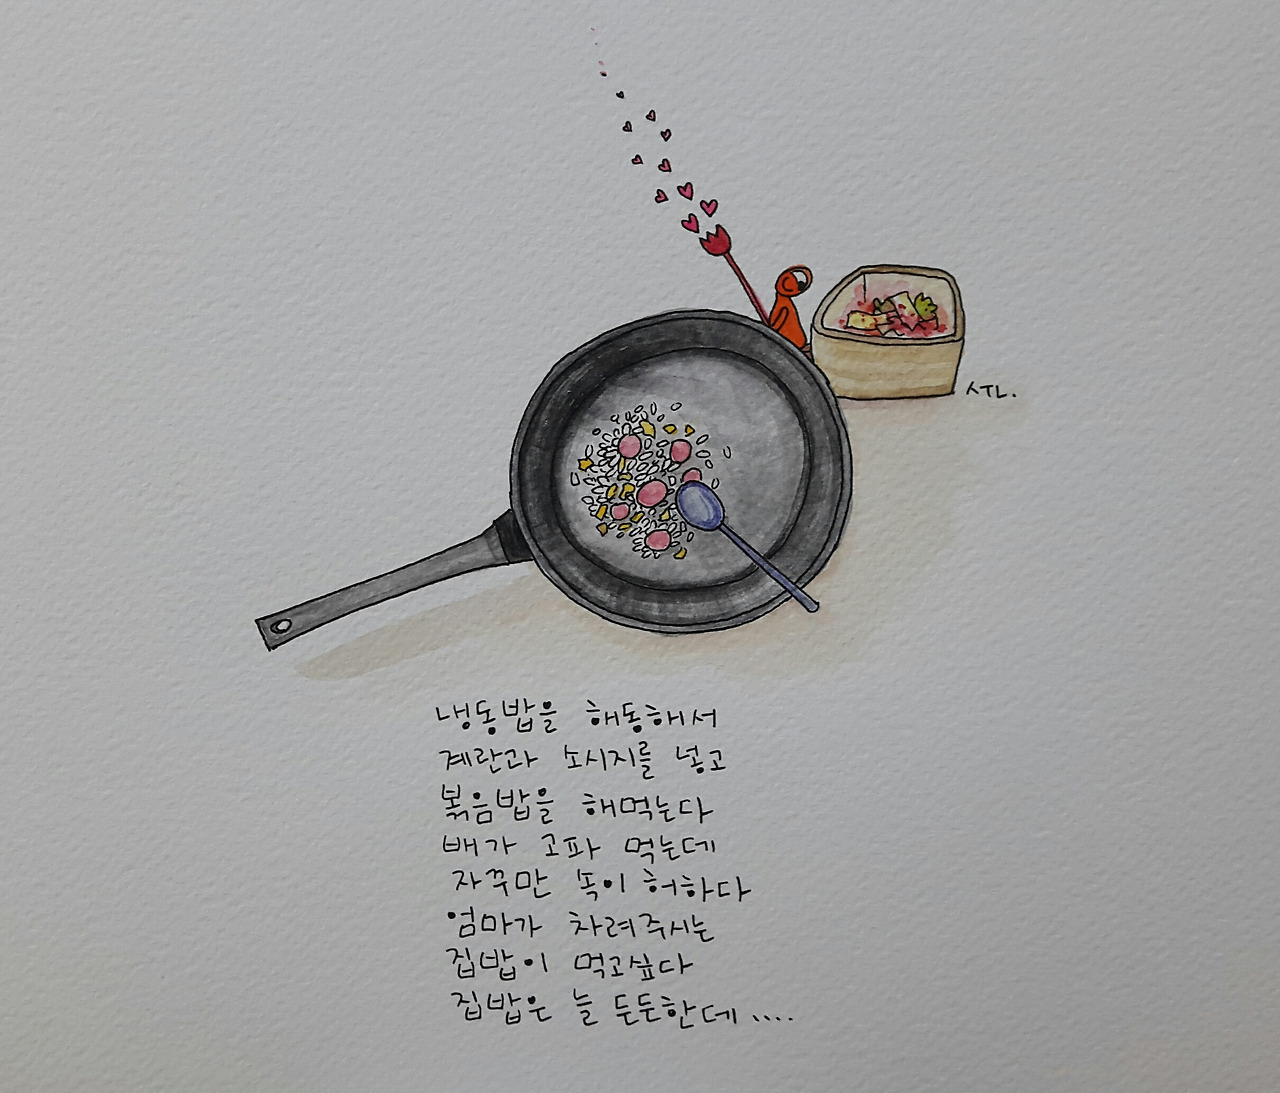 냉동밥을 해동해서
계란과 소시지를 넣고
볶음밥을 해먹는다
배가 고파 먹는데
자꾸만 속이 허하다
엄마가 차려주시는
집밥이 먹고싶다
집밥은 늘 든든한데....